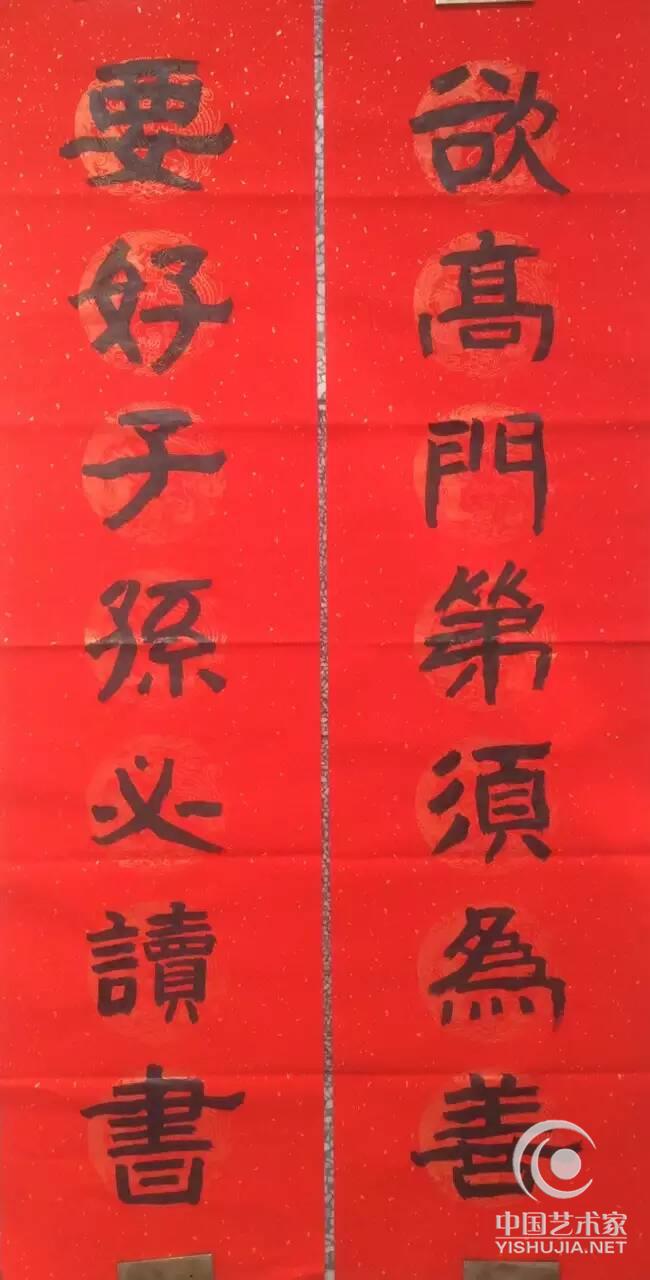 欲髙門第須為善
要好子孫必讀書
中国艺术家
YISHUJIA.NET